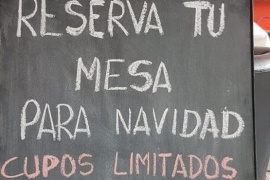 RESERVA TU
MESA
PARA NAVIDAD
CUPOS LIMITADOS